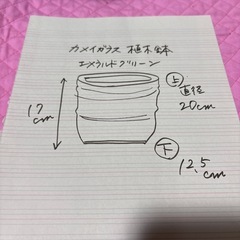 カメイガラス 植木鉢
エメラルドグリーン
上
直径
20cm
17
cm
下
12.5
cm